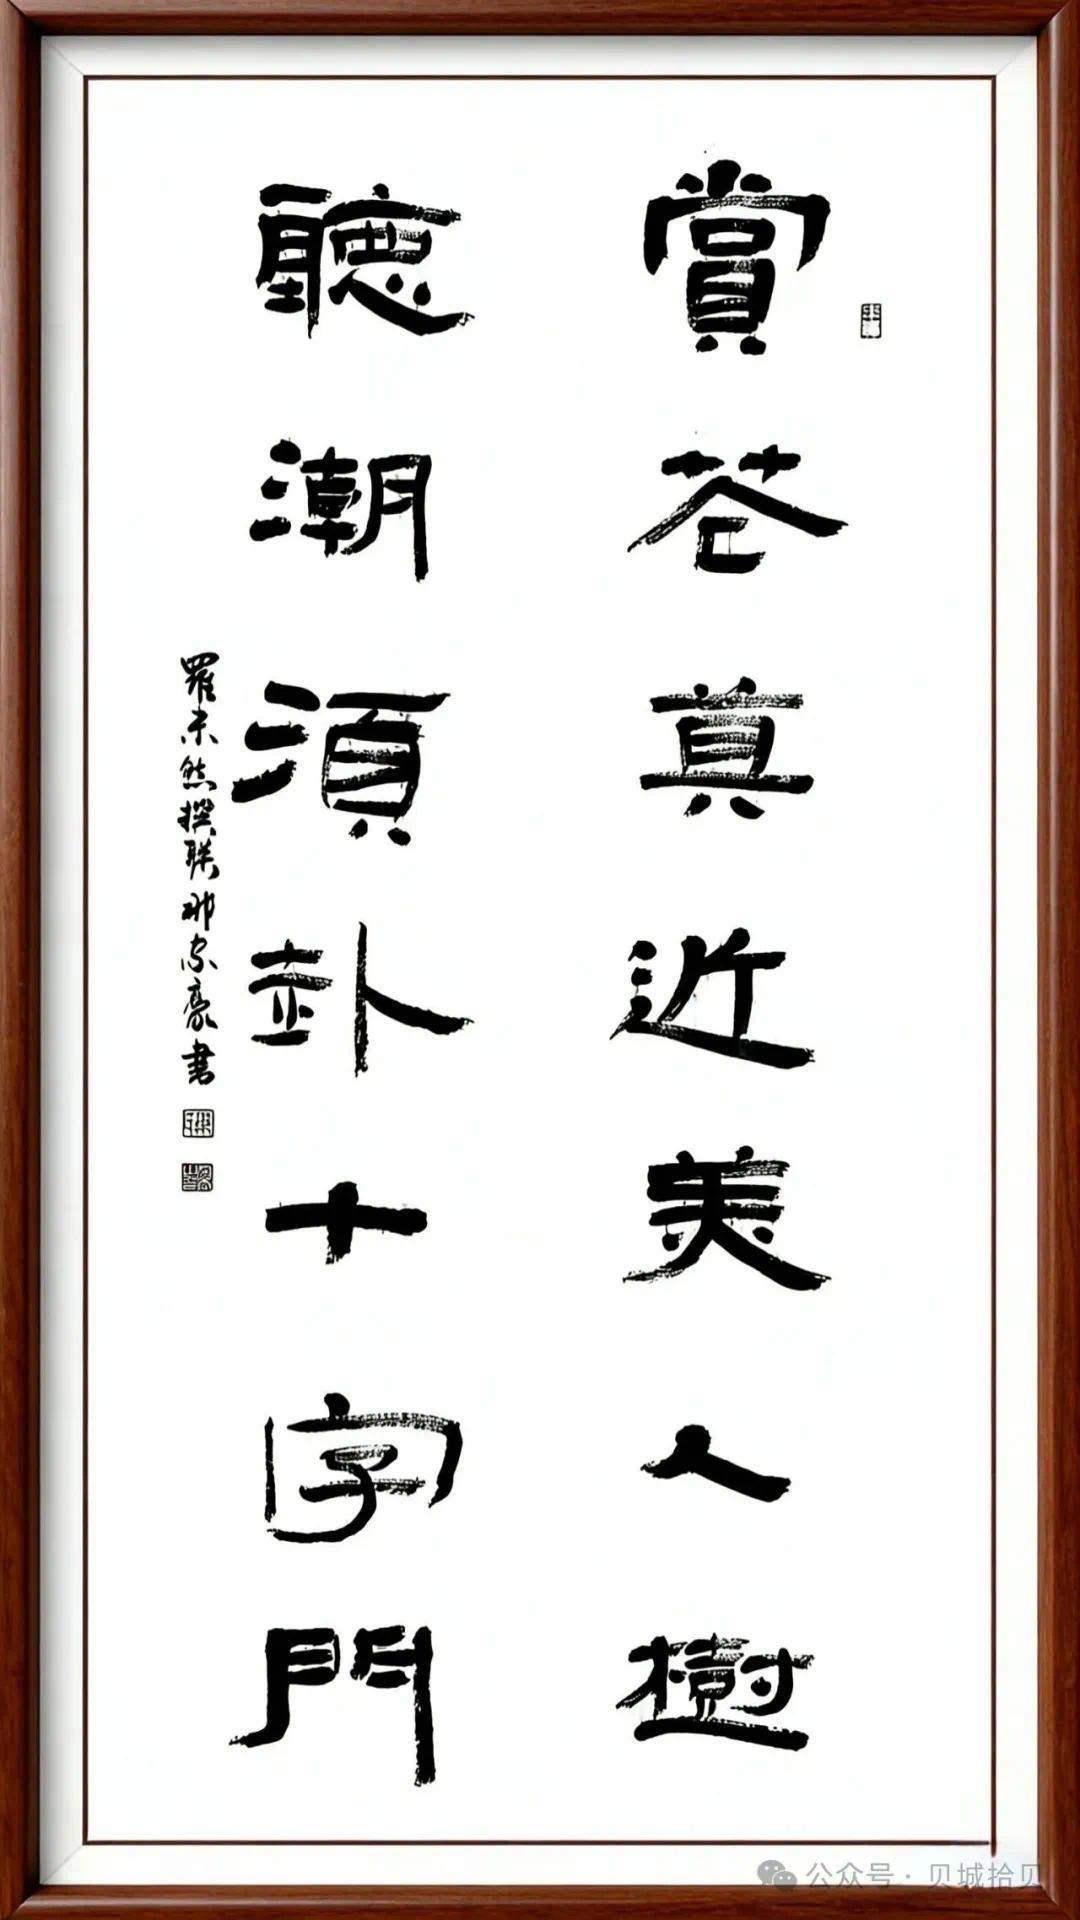 賞花真近美人樹
聽潮須卦十字門
羅未然撰联 家豪書
公众号·贝城拾贝